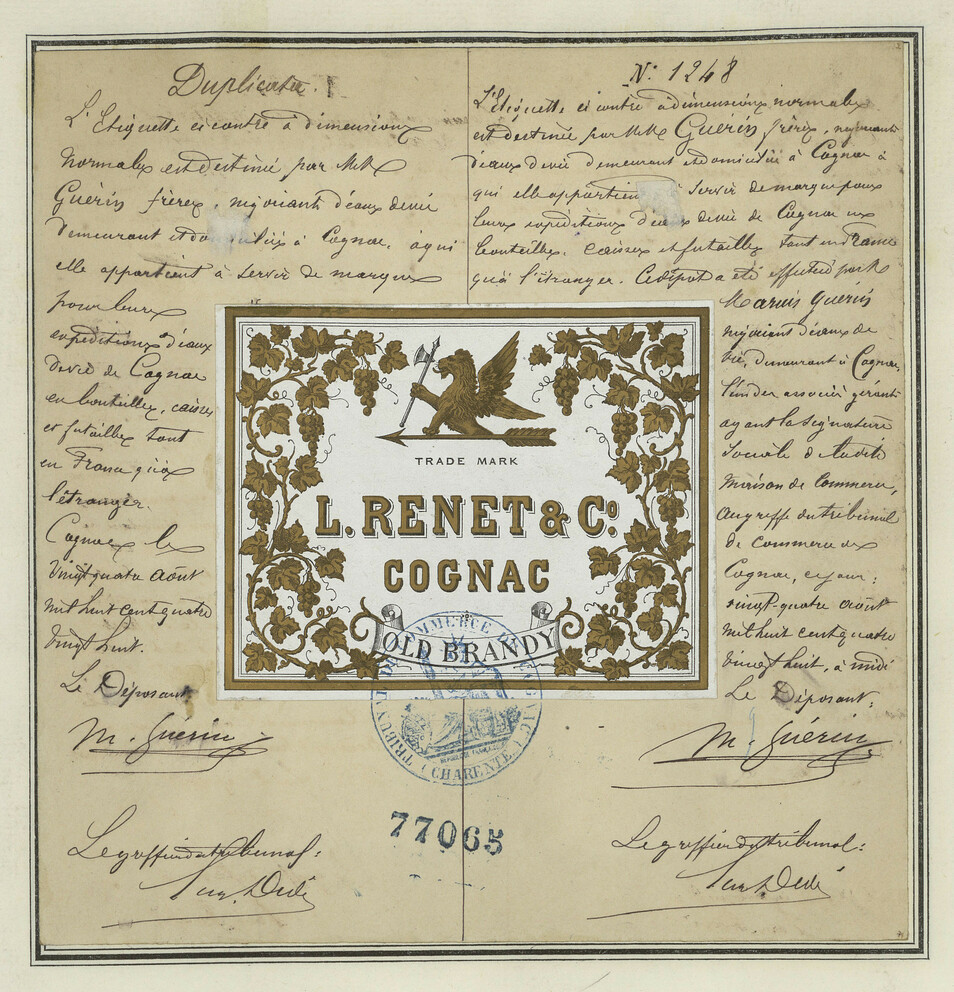 Duplicata.
L'Etiquette ci contre à dimensions
normales est destinée par MM
Guérin frères, négociants d'eaux de vie
demeurant et domiciliés à Cognac, à qui
elle appartient à servir de marque
pour leurs
expéditions d'eaux
de vie de Cognac
en bouteilles, caisses
et futailles tant
en France qu'à
l'étranger.
Cognac le
vingt quatre août
mil huit cent quatre
vingt huit.
Le Déposant
M. Guérin
Le greffier du tribunal:
N: 1248
L'Etiquette ci contre à dimensions normales
est destinée par MM Guérin frères, négociants
d'eaux de vie demeurant et domiciliés à Cognac à
qui elle appartient à servir de marque pour
leurs expéditions d'eaux de vie de Cognac en
bouteilles, caisses et futailles tant en France
qu'à l'étranger. Ce dépôt a été effectué par M
Guérin
négociant d'eaux de
vie, demeurant à Cognac,
l'un des associés gérants
ayant la signature
sociale de la dite
maison de Commerce,
au greffe du tribunal
de commerce de
Cognac, ce jour:
vingt-quatre août
mil huit cent quatre
vingt huit, à midi
Le Déposant:
M. Guérin
Le greffier du tribunal:
TRADE MARK
L. RENET & Cº.
COGNAC
OLD BRANDY
TRIBUNAL DE COMMERCE DE COGNAC
(CHARENTE)
77065